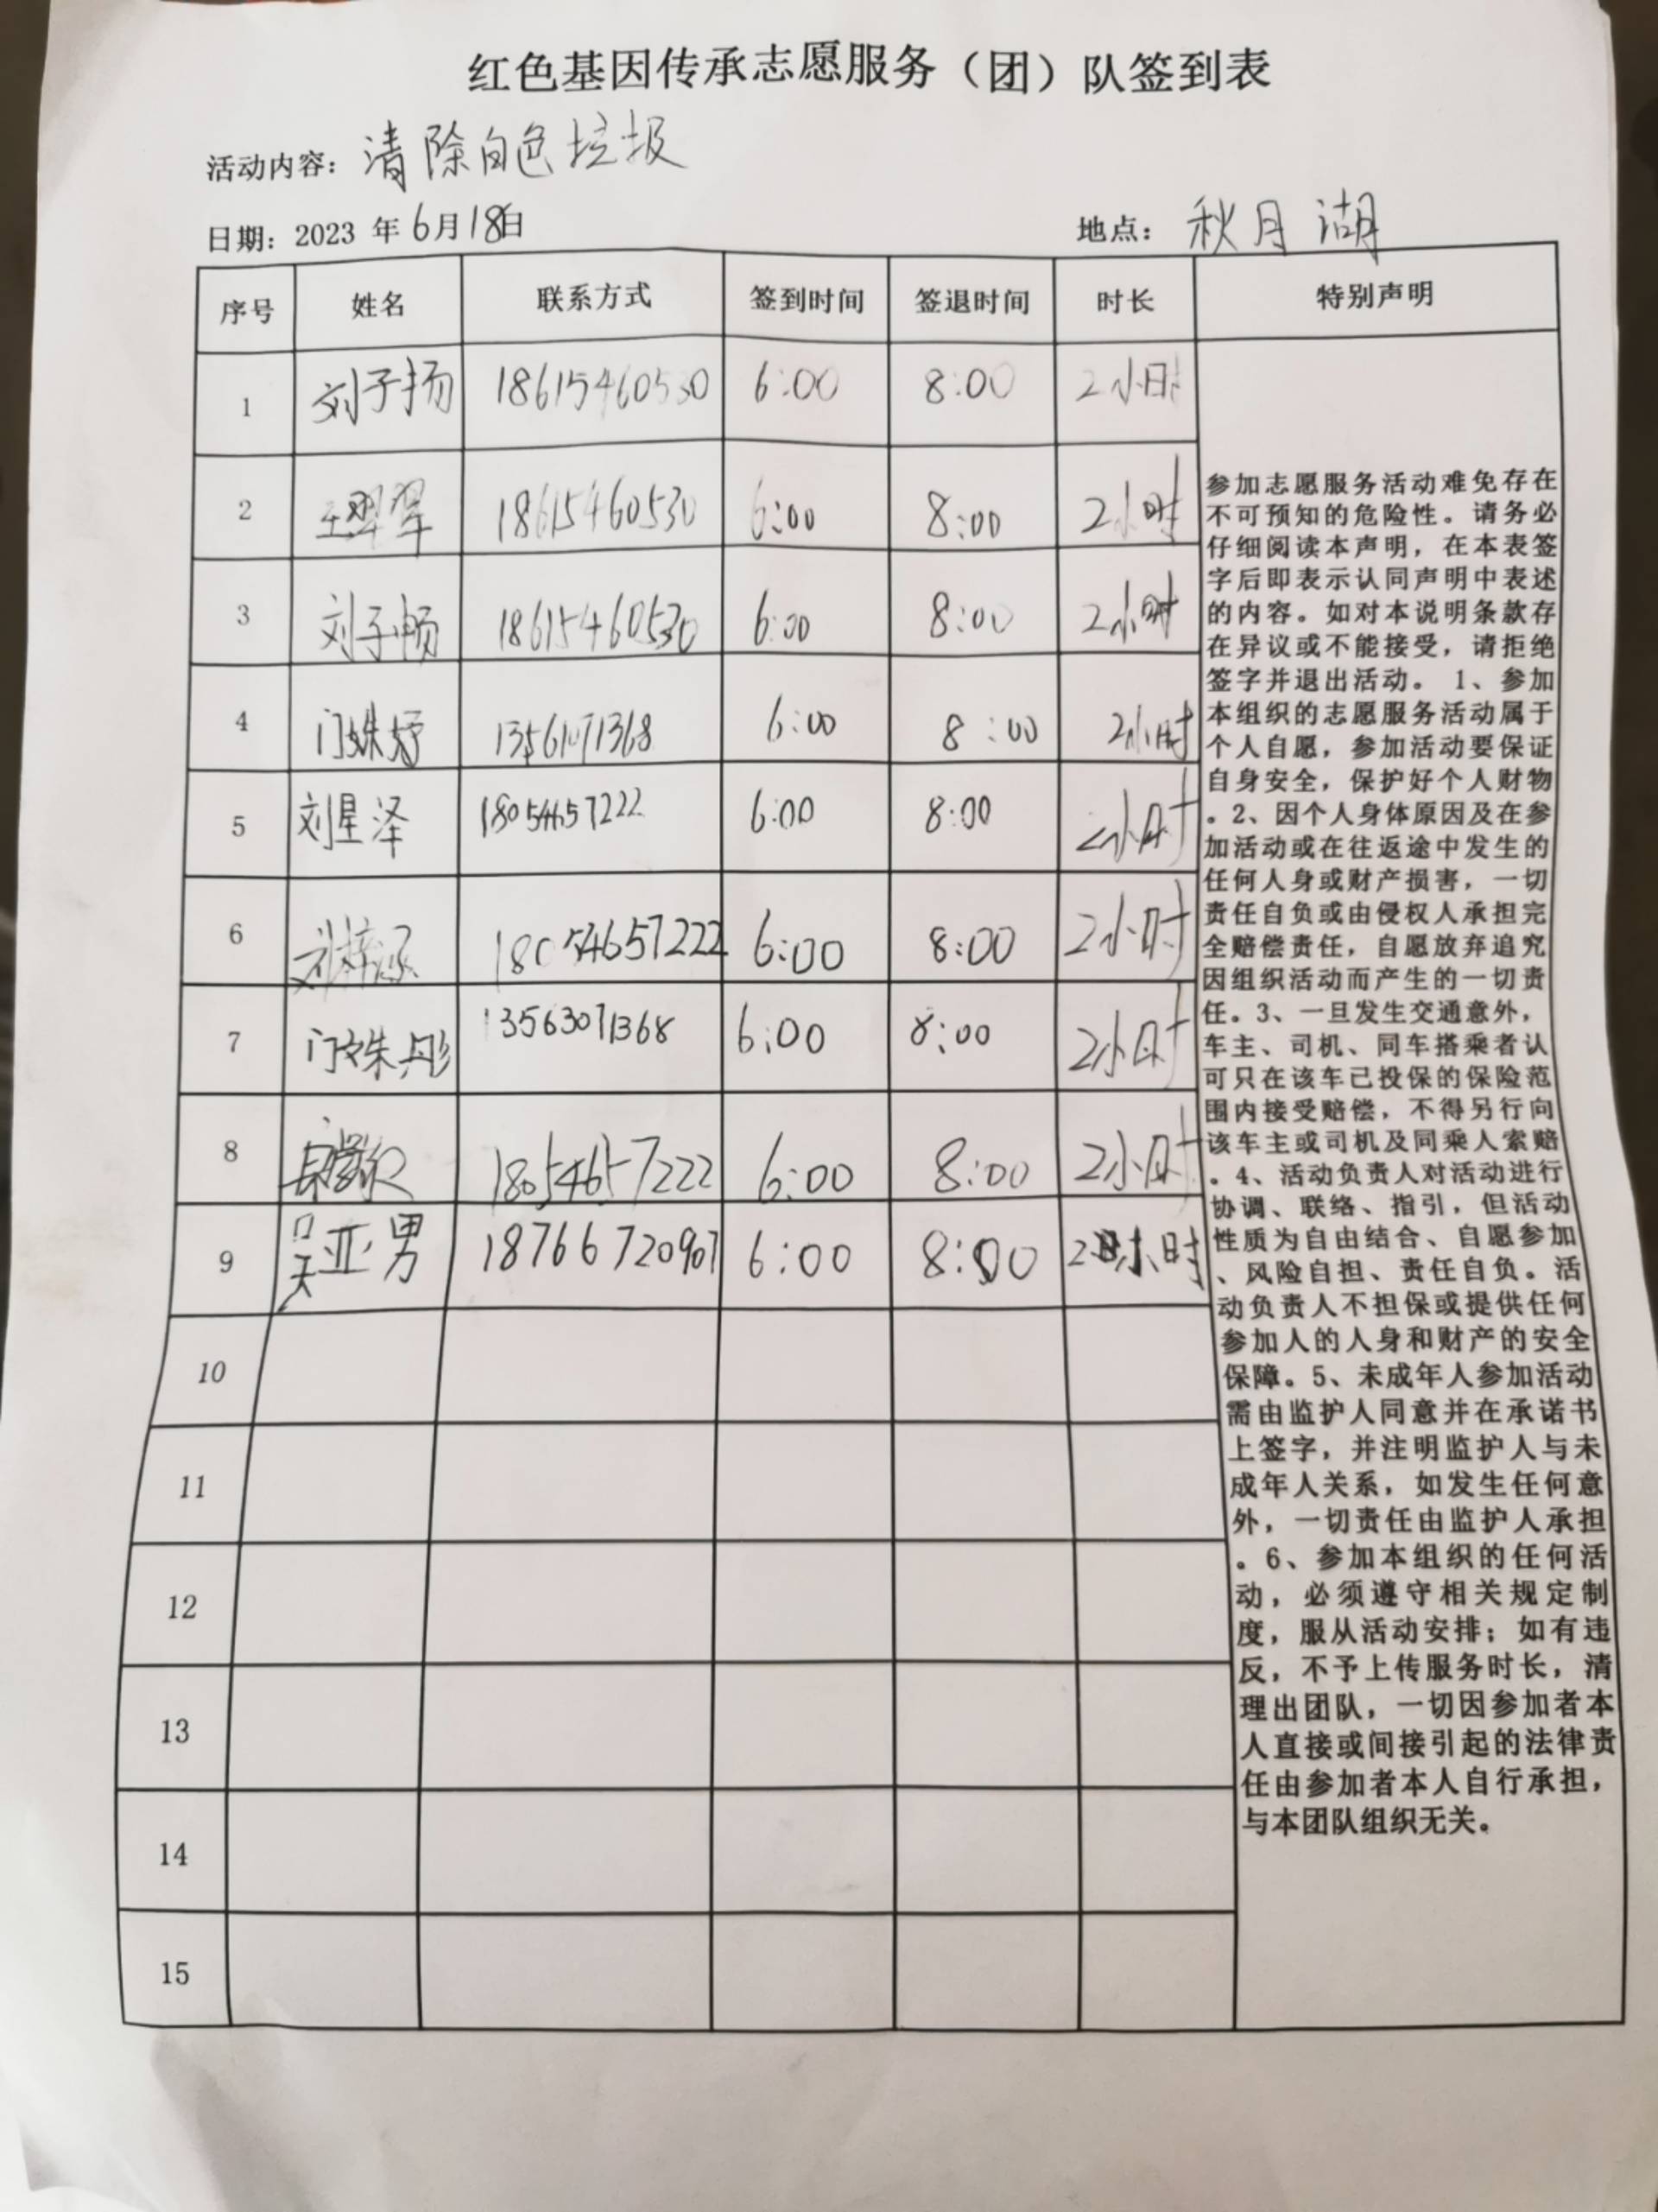 红色基因传承志愿服务（团）队签到表
活动内容：清除白色垃圾
日期：2023 年 6月18日 地点：秋月湖
序号 姓名 联系方式 签到时间 签退时间 时长 特别声明
1 刘子扬 18615460530 6:00 8:00 2小时
2 18615460530 6:00 8:00 2小时
3 刘子畅 18615460530 6:00 8:00 2小时
4 门姝妤 8:00 6:00 2小时
5 刘星泽 18054657222 6:00 8:00 2小时
6 18054657222 6:00 8:00 2小时
7 门姝彤 13563071368 6:00 8:00 2小时
8 18054657222 6:00 8:00 2小时
9 吴亚男 18766720907 6:00 8:00 2小时
10
11
12
13
14
15
参加志愿服务活动难免存在
不可预知的危险性。请务必
仔细阅读本声明，在本表签
字后即表示认同声明中表述
的内容。如对本说明条款存
在异议或不能接受，请拒绝
签字并退出活动。 1、参加
本组织的志愿服务活动属于
个人自愿，参加活动要保证
自身安全，保护好个人财物
。2、因个人身体原因及在参
加活动或在往返途中发生的
任何人身或财产损害，一切
责任自负或由侵权人承担完
全赔偿责任，自愿放弃追究
因组织活动而产生的一切责
任。3、一旦发生交通意外，
车主、司机、同车搭乘者认
可只在该车已投保的保险范
围内接受赔偿，不得另行向
该车主或司机及同乘人索赔
。4、活动负责人对活动进行
协调、联络、指引，但活动
性质为自由结合、自愿参加
、风险自担、责任自负。活
动负责人不担保或提供任何
参加人的人身和财产的安全
保障。5、未成年人参加活动
需由监护人同意并在承诺书
上签字，并注明监护人与未
成年人关系，如发生任何意
外，一切责任由监护人承担
。6、参加本组织的任何活
动，必须遵守相关规定制
度，服从活动安排；如有违
反，不予上传服务时长，清
理出团队，一切因参加者本
人直接或间接引起的法律责
任由参加者本人自行承担，
与本团队组织无关。